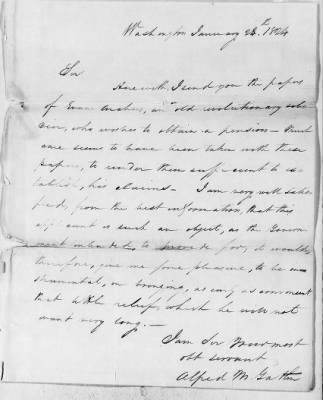 Washington January 28th 1824
Sir
Herewith I send you the papers
of Evan , an old revolutionary sol-
dier, who wishes to obtain a pension — Much
care seems to have been taken with these
papers, to render them sufficient to es-
tablish, his claims — I am very well satis-
fied, from the best information, that this
applicant is such an object, as the Govern-
ment intended to provide for, it would,
therefore, give me some pleasure, to be ins-
trumental, in bringing, as early as convenient
that relief, which he will not
want very long. —
I am Sir your most
obt servant
Alfred M Gatlin